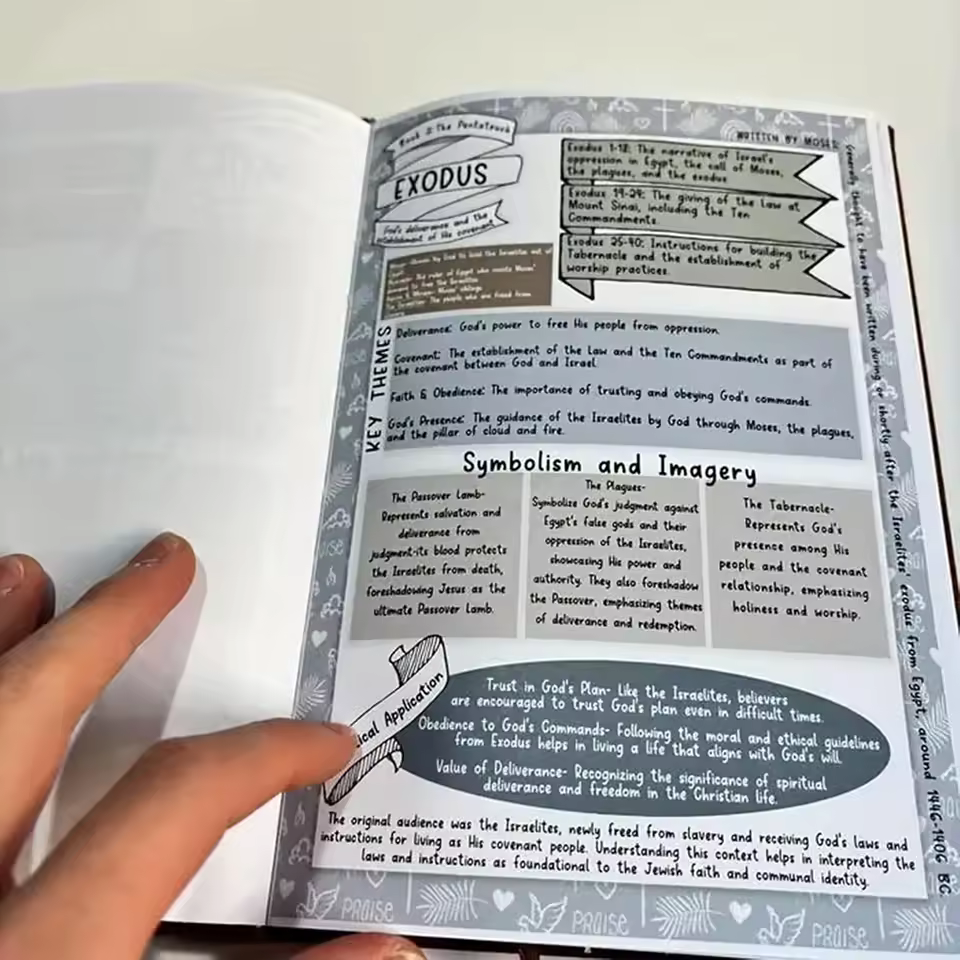 Book 2: The Pentateuch
EXODUS
God's deliverance and the
establishment of His covenant
WRITTEN BY MOSES
Exodus 1-18: The narrative of Israel's
oppression in Egypt, the call of Moses,
the plagues, and the exodus
Exodus 19-24: The giving of the Law at
Mount Sinai, including the Ten
Commandments.
Exodus 25-40: Instructions for building the
Tabernacle and the establishment of
worship practices.
by God to lead the Israelites out of
The ruler of Egypt who resists Moses'
to free the Israelites
Moses' siblings
The people who are freed from
KEY THEMES
Deliverance: God's power to free His people from oppression.
Covenant: The establishment of the Law and the Ten Commandments as part of
the covenant between God and Israel.
Faith & Obedience: The importance of trusting and obeying God's commands.
God's Presence: The guidance of the Israelites by God through Moses, the plagues,
and the pillar of cloud and fire.
Symbolism and Imagery
The Passover Lamb-
Represents salvation and
deliverance from
judgment-its blood protects
the Israelites from death,
foreshadowing Jesus as the
ultimate Passover Lamb.
The Plagues-
Symbolize God's judgment against
Egypt's false gods and their
oppression of the Israelites,
showcasing His power and
authority. They also foreshadow
the Passover, emphasizing themes
of deliverance and redemption.
The Tabernacle-
Represents God's
presence among His
people and the covenant
relationship, emphasizing
holiness and worship.
Application
Trust in God's Plan- Like the Israelites, believers
are encouraged to trust God's plan even in difficult times.
Obedience to God's Commands- Following the moral and ethical guidelines
from Exodus helps in living a life that aligns with God's will.
Value of Deliverance- Recognizing the significance of spiritual
deliverance and freedom in the Christian life.
The original audience was the Israelites, newly freed from slavery and receiving God's laws and
instructions for living as His covenant people. Understanding this context helps in interpreting the
laws and instructions as foundational to the Jewish faith and communal identity.
Generally thought to have been written during or shortly after the Israelites' exodus from Egypt, around 1446-1406 BC.
PRAISE
PRAISE
PRAISE